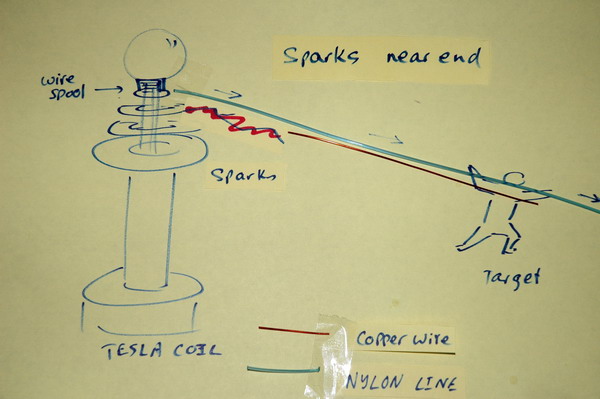 Sparks near end
wire
spool
Sparks
Target
TESLA COIL
Copper wire
NYLON LINE